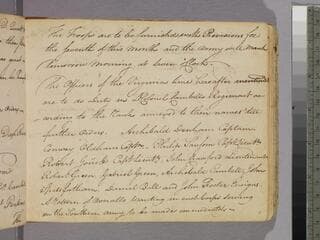 The Troops are to be furnished with Provisions for
the seventh of this month and the Army will march
Tomorrow Morning at seven OClock.
The Officers of the Virginia Line hereafter mentioned
are to do Duty in Colonel Campbells Regiment ac-
cording to the Rank annexed to their names till
further Orders. Archibald Denham Captain
Conway Oldham Captn. Philip Sansom Capt Lieutt.
Robert Capt Lieutt. John Crawford Lieutenant
Robert Green Gabriel Green, Archibald Campbell John
Spotswood Daniel Ball and John Foster Ensigns
A Return of wanting in each Corps serving
in the Southern Army to be made immediately